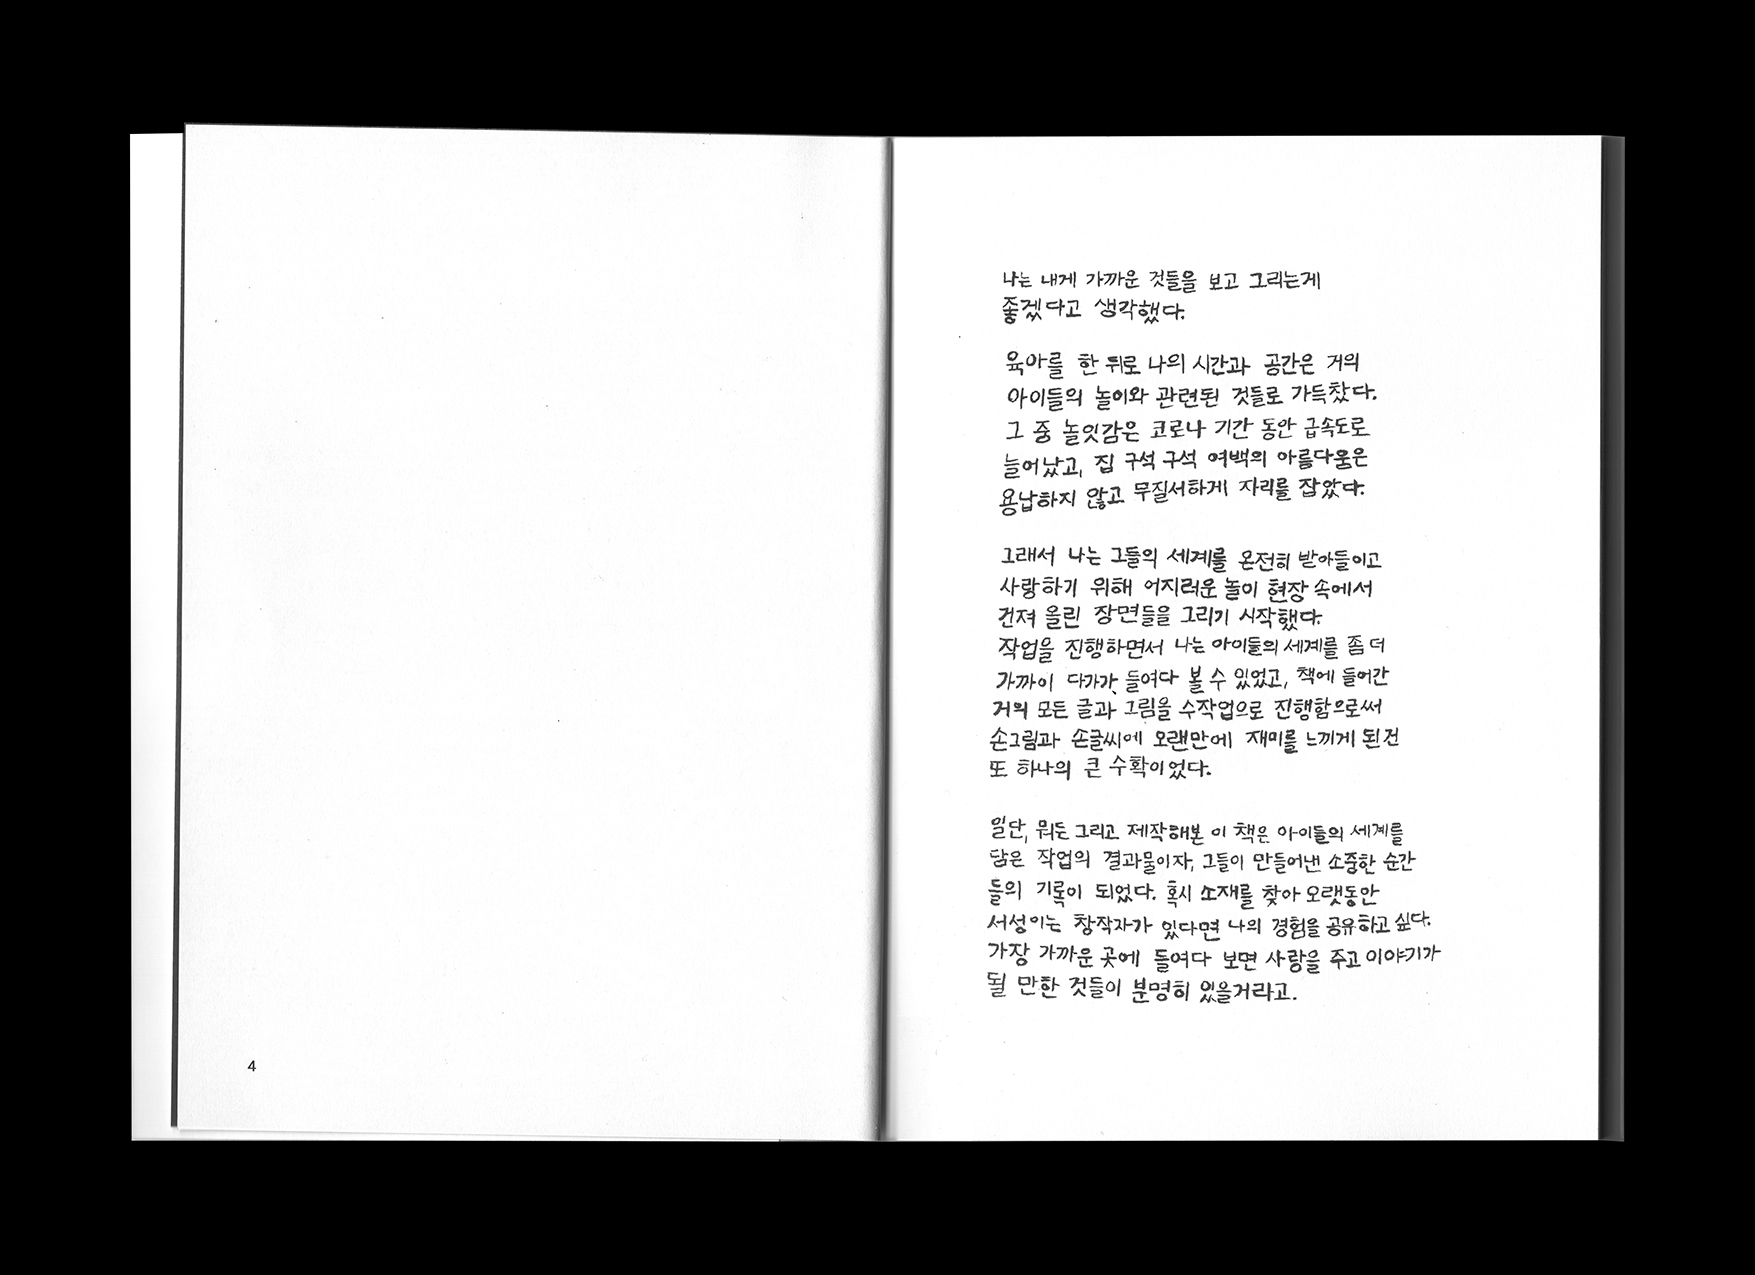 4
나는 내게 가까운 것들을 보고 그리는게
좋겠다고 생각했다.
육아를 한 뒤로 나의 시간과 공간은 거의
아이들의 놀이와 관련된 것들로 가득찼다.
그 중 놀잇감은 코로나 기간 동안 급속도로
늘어났고, 집 구석 구석 여백의 아름다움은
용납하지 않고 무질서하게 자리를 잡았다.
그래서 나는 그들의 세계를 온전히 받아들이고
사랑하기 위해 어지러운 놀이 현장 속에서
건져 올린 장면들을 그리기 시작했다.
작업을 진행하면서 나는 아이들의 세계를 좀 더
가까이 다가가 들여다 볼 수 있었고, 책에 들어간
거의 모든 글과 그림을 수작업으로 진행함으로써
손그림과 손글씨에 오랜만에 재미를 느끼게 된건
또 하나의 큰 수확이었다.
일단, 뭐든 그리고 제작해본 이 책은 아이들의 세계를
담은 작업의 결과물이자, 그들이 만들어낸 소중한 순간
들의 기록이 되었다. 혹시 소재를 찾아 오랫동안
서성이는 창작자가 있다면 나의 경험을 공유하고 싶다.
가장 가까운 곳에 들여다 보면 사랑을 주고 이야기가
될 만한 것들이 분명히 있을거라고.